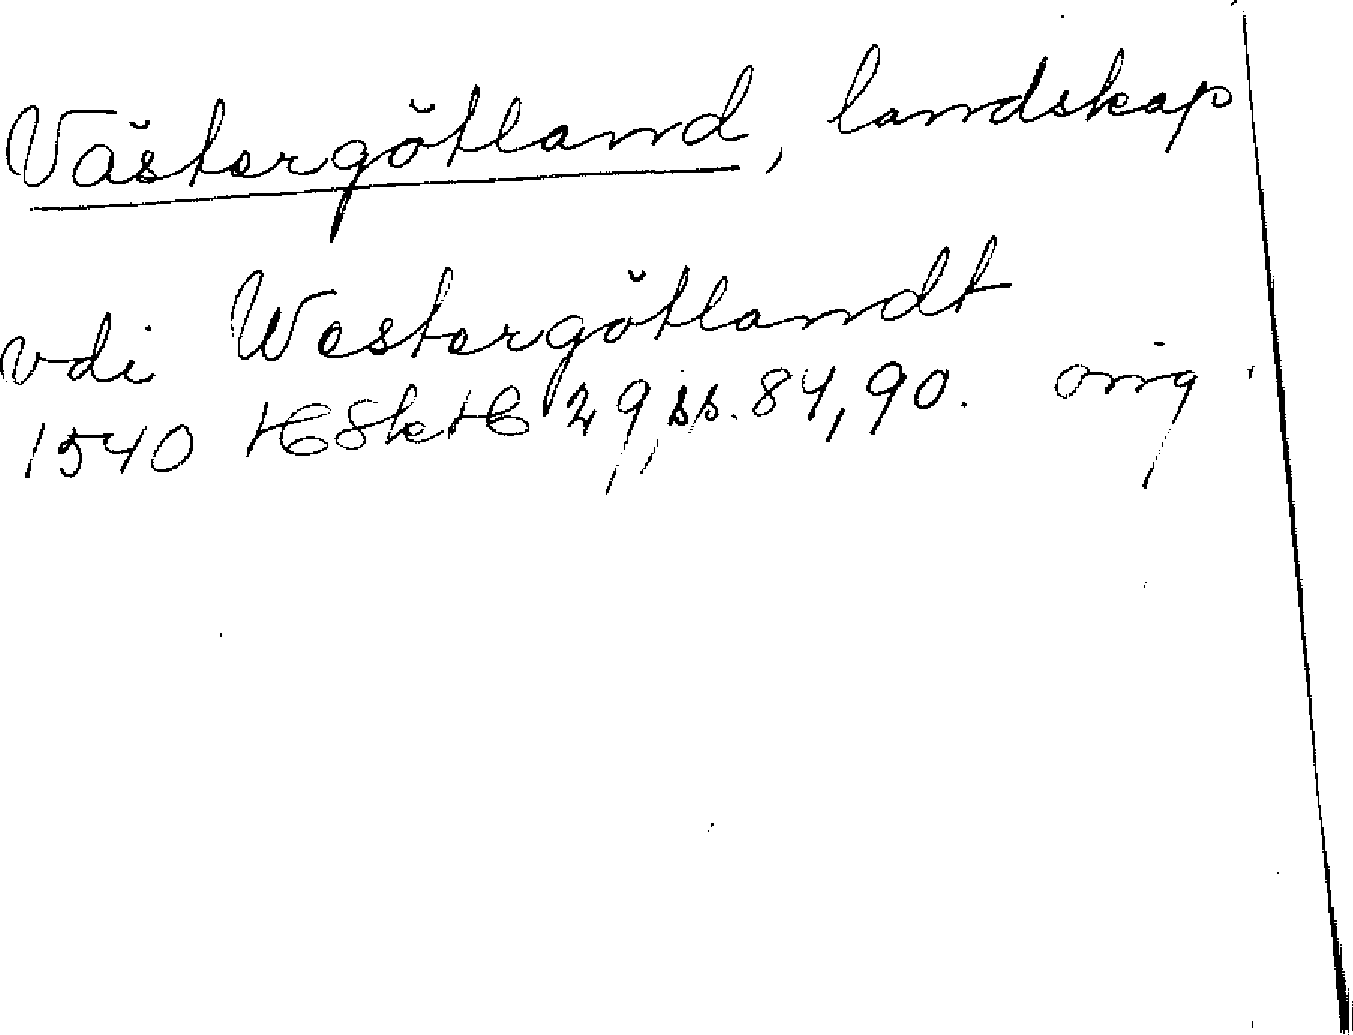 Västergötland, landskap
vdi Westergötlandt
1540 HSkH 29, ss. 84, 90. orig.